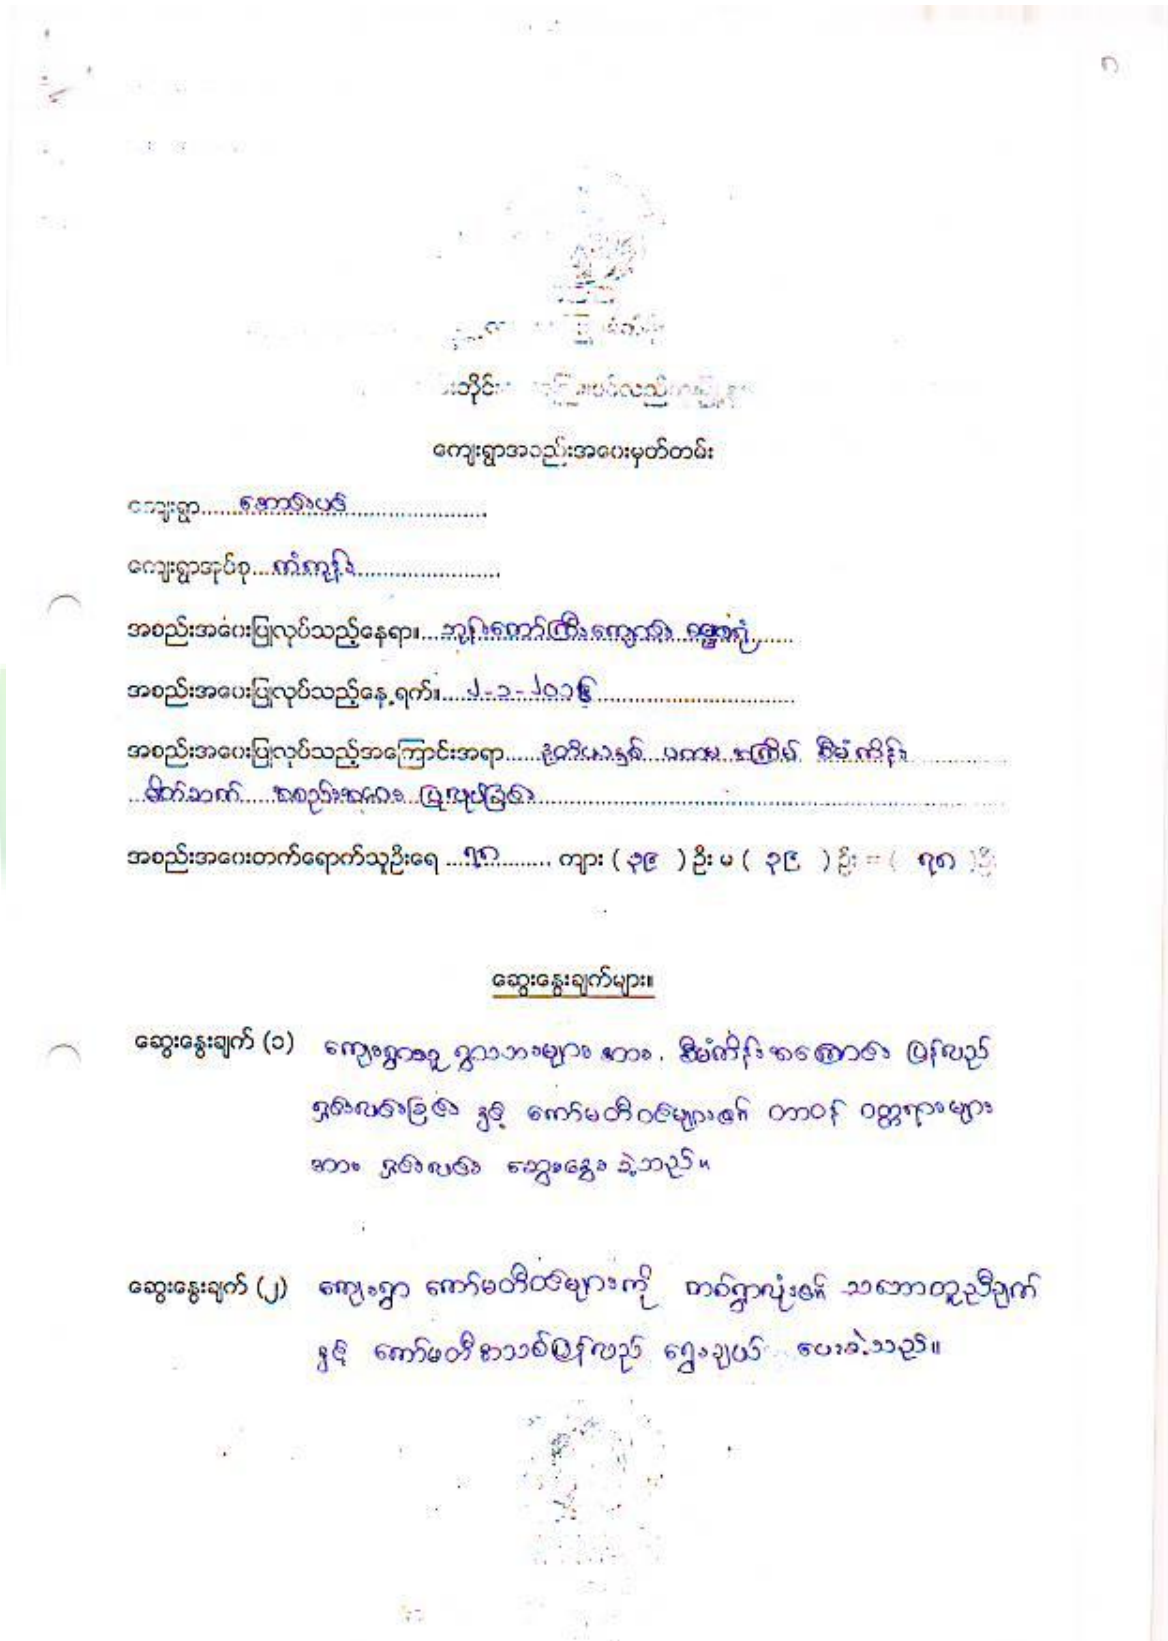 ကျေးရွာအစည်းအဝေးမှတ်တမ်း
ကျေးရွာ......အောင်းပင်..................
ကျေးရွာအုပ်စု...ကံကုန်း......................
အစည်းအဝေးပြုလုပ်သည့်နေရာ။...ဘုန်းတော်ကြီးကျောင်း ဓမ္မာရုံ.......
အစည်းအဝေးပြုလုပ်သည့်နေ့ရက်။....၂-၁-၂၀၁၆..............................
အစည်းအဝေးပြုလုပ်သည့်အကြောင်းအရာ.....ဒုတိယနှစ် ပထမ အကြိမ် စီမံကိန်း
မိတ်ဆက် အစည်းအဝေး ပြုလုပ်ခြင်း
အစည်းအဝေးတက်ရောက်သူဦးရေ ...၇၈.......... ကျား ( ၃၉ ) ဦး မ ( ၃၉ ) ဦး = ( ၇၈ )ဦး
ဆွေးနွေးချက်များ။
ဆွေးနွေးချက် (၁) ကျေးရွာနေ ရွာသားများ အား စီမံကိန်းအကြောင်း ပြန်လည်
ရှင်းလင်းခြင်း နှင့် ကော်မတီဝင်များ၏ တာဝန် ဝတ္တရားများ
အား ရှင်းလင်း ဆွေးနွေး ခဲ့သည်။
ဆွေးနွေးချက် (၂) ကျေးရွာ ကော်မတီဝင်များကို တစ်ရွာလုံး၏ သဘောတူညီချက်
နှင့် ကော်မတီအသစ်ပြန်လည် ရွေးချယ် ပေးခဲ့သည်။